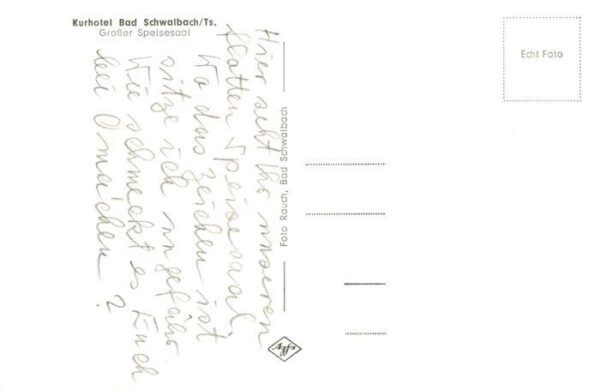 Kurhotel Bad Schwalbach/Ts.
Großer Speisesaal
Echt Foto
Hier seht Ihr unseren
flotten Speisesaal,
Wo das Zeichen ist
sitze ich ungefähr.
Wie schmeckt es Euch
bei Omaichen?
Foto Rauch, Bad Schwalbach
Agfa